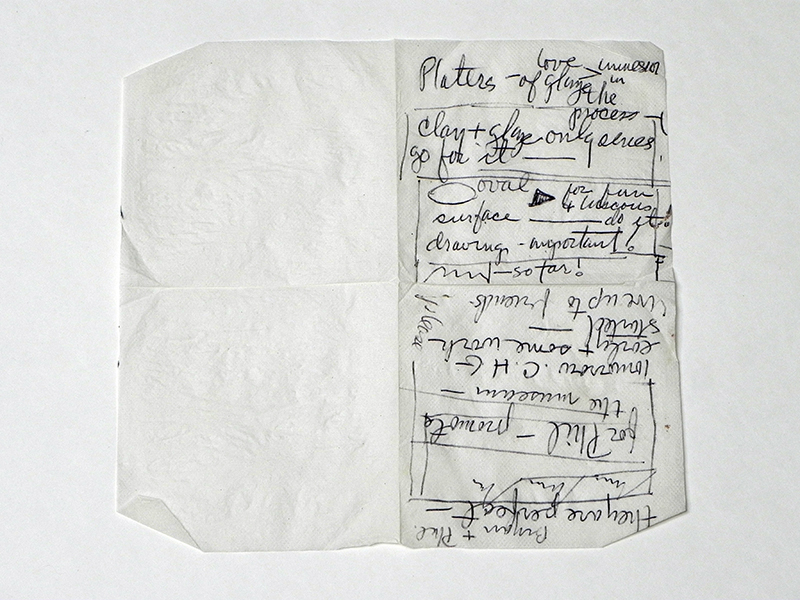 Platers - of glaze
love
immersion
in
the
process
clay + glaze only series
go for it
oval
for fun
+ luscious
surface do it!
drawings - important!
Live up to friends.
please
started
early + some work
tomorrow. C.H.G
the museum -
for Phil - promote
they are perfect -
Bryan + Phil.